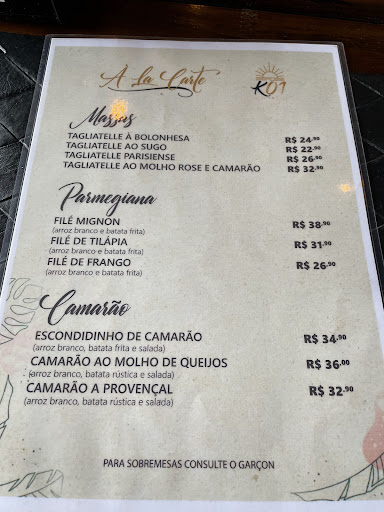 À La Carte
K01
Massas
TAGLIATELLE À BOLONHESA R$ 24,90
TAGLIATELLE AO SUGO R$ 22,90
TAGLIATELLE PARISIENSE R$ 26,90
TAGLIATELLE AO MOLHO ROSE E CAMARÃO R$ 32,90
Parmegiana
FILÉ MIGNON R$ 38,90
(arroz branco e batata frita)
FILÉ DE TILÁPIA R$ 31,90
(arroz branco e batata frita)
FILÉ DE FRANGO R$ 26,90
(arroz branco e batata frita)
Camarão
ESCONDIDINHO DE CAMARÃO R$ 34,90
(arroz branco, batata frita e salada)
CAMARÃO AO MOLHO DE QUEIJOS R$ 36,00
(arroz branco, batata rústica e salada)
CAMARÃO A PROVENÇAL R$ 32,90
(arroz branco, batata rústica e salada)
PARA SOBREMESAS CONSULTE O GARÇON